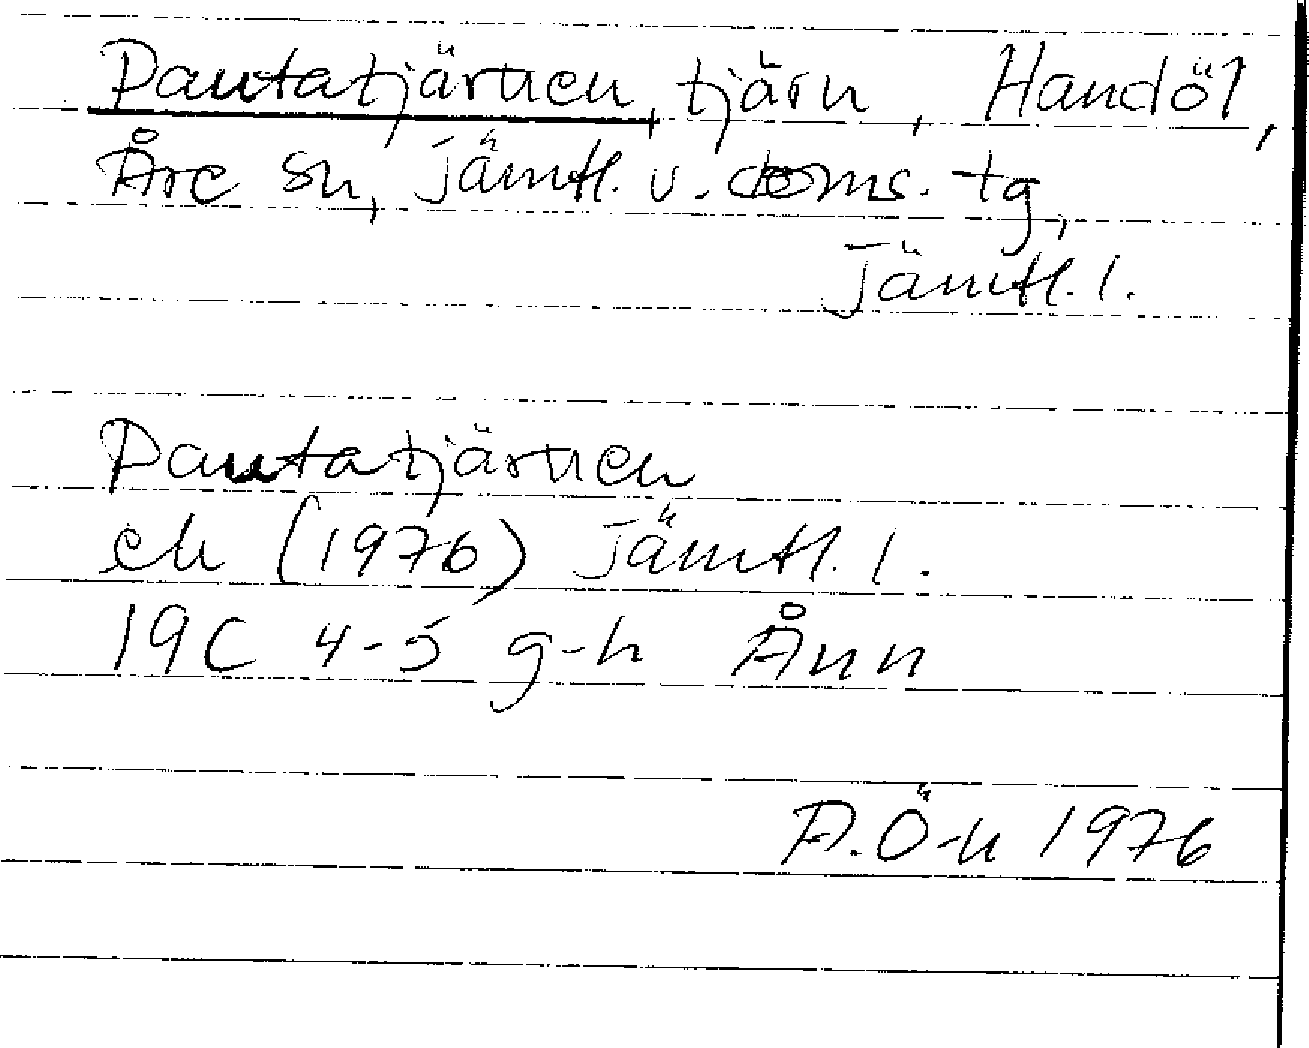 Pautatjärnen, tjärn, Handöl,
Åre sn, Jämtl. v. doms. tg,
Jämtl. l.
Pautatjärnen
ek (1976) Jämtl. l.
19C 4-5 g-h Ånn
A.Ö-n 1976